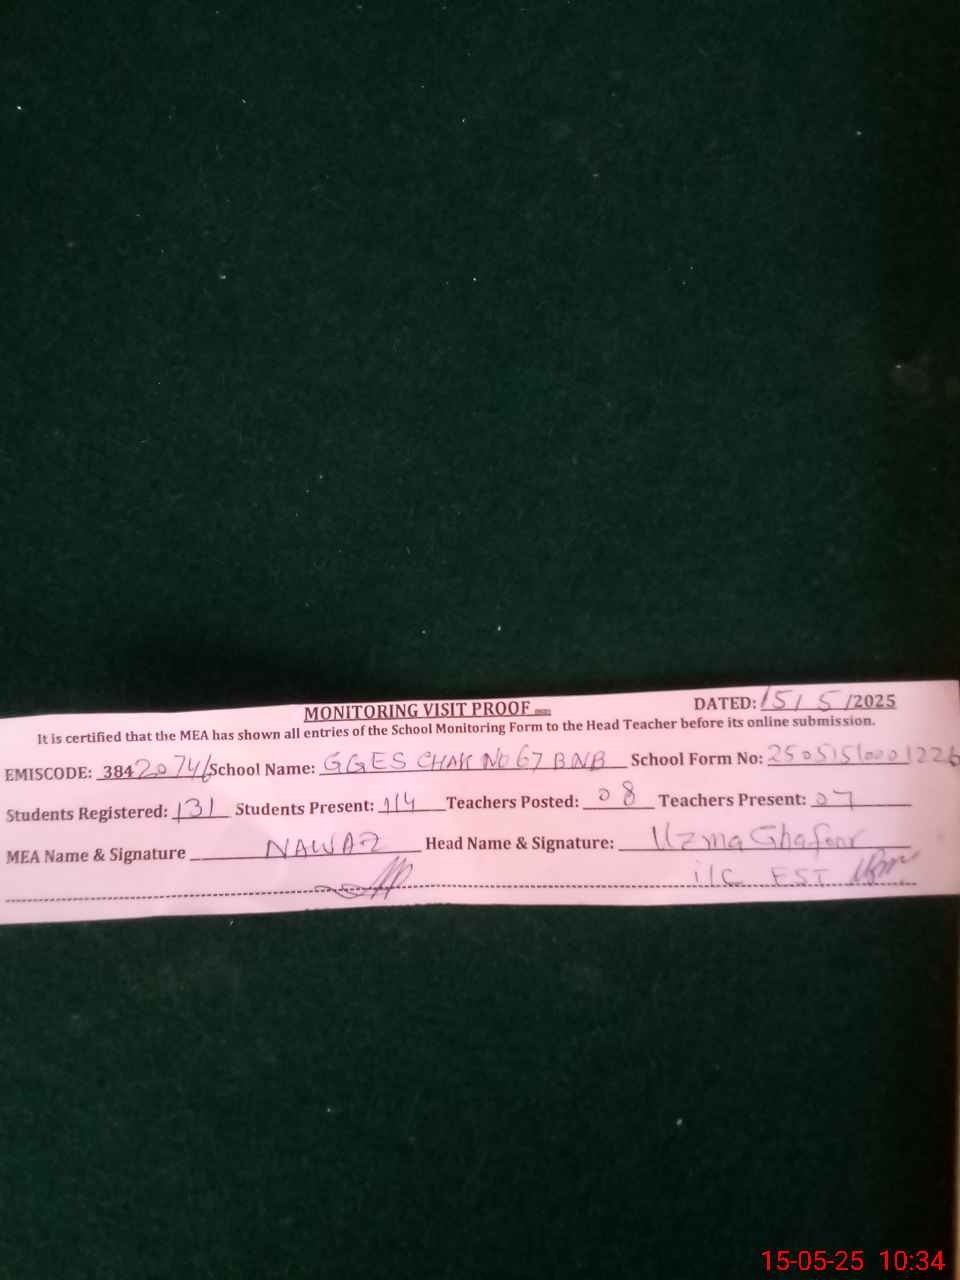 MONITORING VISIT PROOF
DATED: 15/5/2025
It is certified that the MEA has shown all entries of the School Monitoring Form to the Head Teacher before its online submission.
EMISCODE: 38420746 School Name: GGES CHAK No 67 BNB School Form No:
Students Registered: 131 Students Present: 114 Teachers Posted: 08 Teachers Present: 07
MEA Name & Signature NAWAZ Head Name & Signature: Uzma Ghafoor
i/C EST
15-05-25 10:34